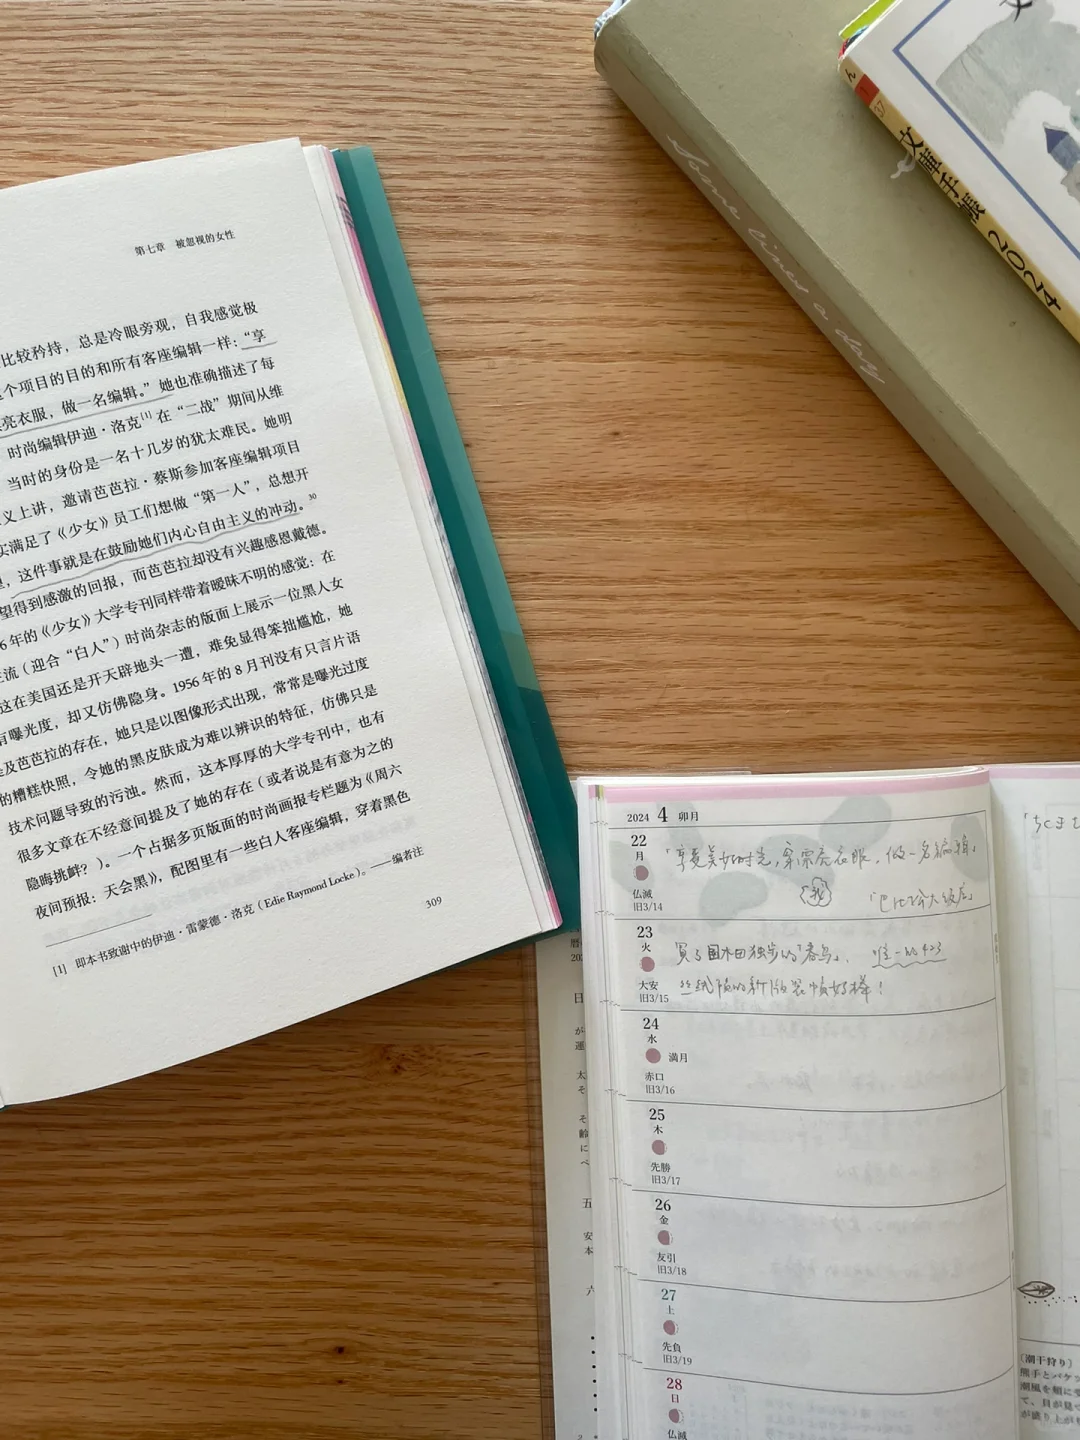 第七章 被忽视的女性
比较矜持，总是冷眼旁观，自我感觉极
个项目的目的和所有客座编辑一样：“享
亮衣服，做一名编辑。”她也准确描述了每
时尚编辑伊迪·洛克[1]在“二战”期间从维
当时的身份是一名十几岁的犹太难民。她明
义上讲，邀请芭芭拉·蔡斯参加客座编辑项目
实满足了《少女》员工们想做“第一人”，总想开
，这件事就是在鼓励她们内心自由主义的冲动。30
望得到感激的回报，而芭芭拉却没有兴趣感恩戴德。
6年的《少女》大学专刊同样带着暧昧不明的感觉：在
流（迎合“白人”）时尚杂志的版面上展示一位黑人女
这在美国还是开天辟地头一遭，难免显得笨拙尴尬，她
有曝光度，却又仿佛隐身。1956年的8月刊没有只言片语
及芭芭拉的存在，她只是以图像形式出现，常常是曝光过度
的糟糕快照，令她的黑皮肤成为难以辨识的特征，仿佛只是
技术问题导致的污浊。然而，这本厚厚的大学专刊中，也有
很多文章在不经意间提及了她的存在（或者说是有意为之的
隐晦挑衅？）。一个占据多页版面的时尚画报专栏题为《周六
夜间预报：天会黑》，配图里有一些白人客座编辑，穿着黑色
[1] 即本书致谢中的伊迪·雷蒙德·洛克（Edie Raymond Locke）。——编者注
309
Some lines a day
文庫手帳 2024
37
2024 4 卯月
22
月
仏滅
旧3/14
「享受美好时光，穿漂亮衣服，做一名编辑」
我
23
火
大安
旧3/15
買了国木田独步的「春鸟」，唯一的423
丝纸版的新版装帧好棒！
24
水
満月
赤口
旧3/16
25
木
先勝
旧3/17
26
金
友引
旧3/18
27
土
先負
旧3/19
28
日
仏滅
〔潮干狩り〕
熊手とバケッ
潮風を頬に受
て、貝が見つ
が盛り上が